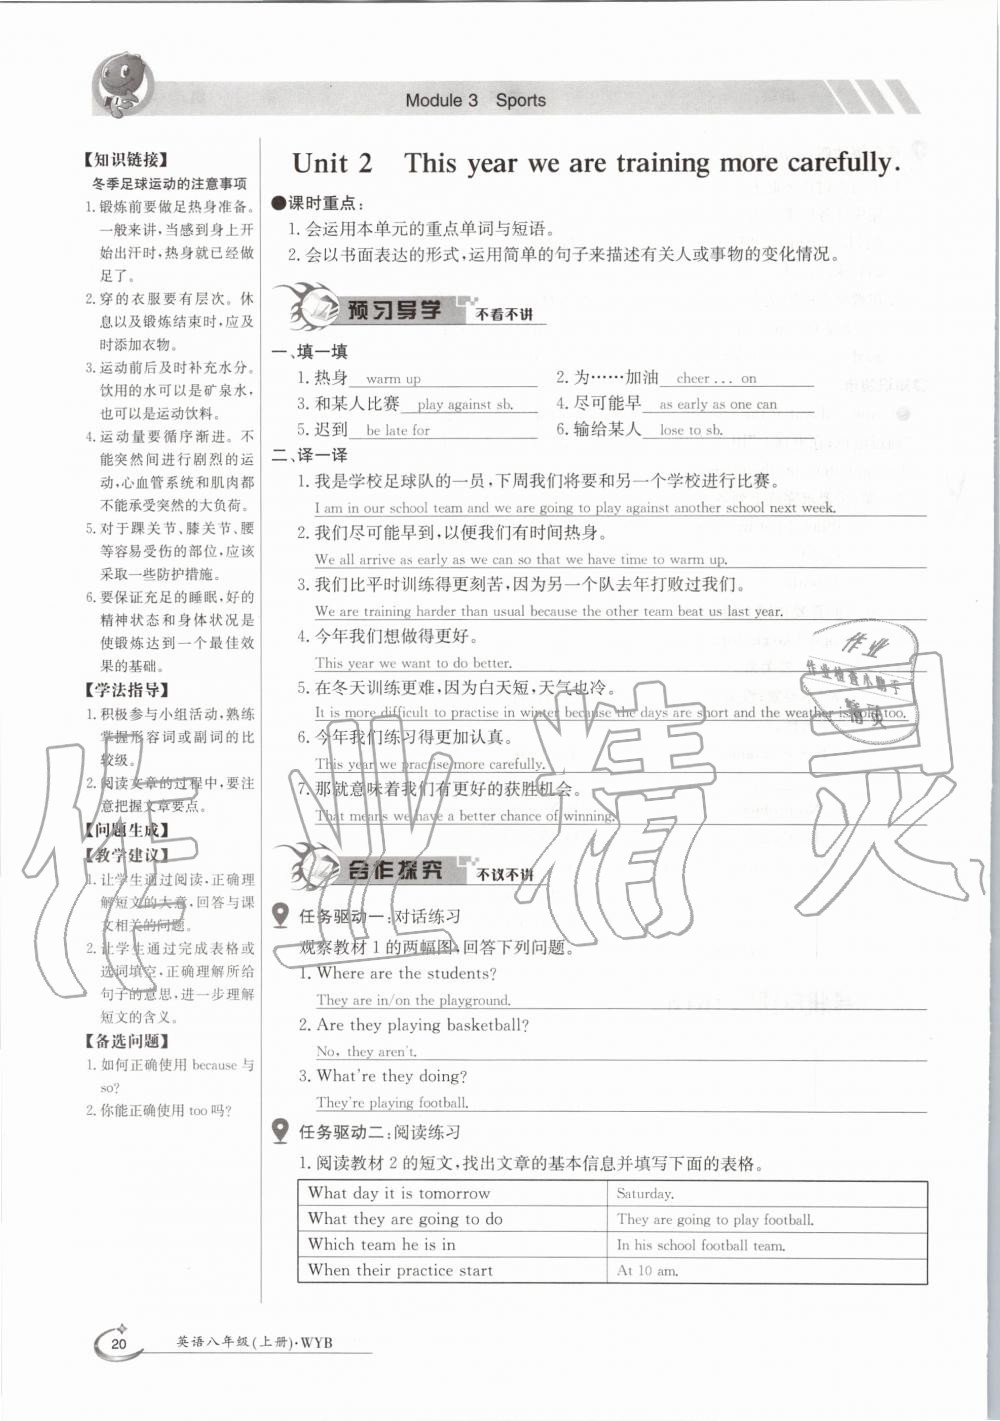 Module 3 Sports
【知识链接】
冬季足球运动的注意事项
1. 锻炼前要做足热身准备。
一般来讲,当感到身上开
始出汗时,热身就已经做
足了。
2. 穿的衣服要有层次。休
息以及锻炼结束时,应及
时添加衣物。
3. 运动前后及时补充水分。
饮用的水可以是矿泉水,
也可以是运动饮料。
4. 运动量要循序渐进。不
能突然间进行剧烈的运
动,心血管系统和肌肉都
不能承受突然的大负荷。
5. 对于踝关节、膝关节、腰
等容易受伤的部位,应该
采取一些防护措施。
6. 要保证充足的睡眠,好的
精神状态和身体状况是
使锻炼达到一个最佳效
果的基础。
【学法指导】
1. 积极参与小组活动,熟练
掌握形容词或副词的比
较级。
2. 阅读文章的过程中,要注
意把握文章要点。
【问题生成】
【教学建议】
1. 让学生通过阅读,正确理
解短文的大意,回答与课
文相关的问题。
2. 让学生通过完成表格或
选词填空,正确理解所给
句子的意思,进一步理解
短文的含义。
【备选问题】
1. 如何正确使用 because 与
so?
2. 你能正确使用 too 吗?
Unit 2 This year we are training more carefully.
●课时重点:
1. 会运用本单元的重点单词与短语。
2. 会以书面表达的形式,运用简单的句子来描述有关人或事物的变化情况。
预习导学 不看不讲
一、填一填
1. 热身 warm up 2. 为……加油 cheer ... on
3. 和某人比赛 play against sb. 4. 尽可能早 as early as one can
5. 迟到 be late for 6. 输给某人 lose to sb.
二、译一译
1. 我是学校足球队的一员,下周我们将要和另一个学校进行比赛。
I am in our school team and we are going to play against another school next week.
2. 我们尽可能早到,以便我们有时间热身。
We all arrive as early as we can so that we have time to warm up.
3. 我们比平时训练得更刻苦,因为另一个队去年打败过我们。
We are training harder than usual because the other team beat us last year.
4. 今年我们想做得更好。
This year we want to do better.
5. 在冬天训练更难,因为白天短,天气也冷。
It is more difficult to practise in winter because the days are short and the weather is cold too.
6. 今年我们练习得更加认真。
This year we practise more carefully.
7. 那就意味着我们有更好的获胜机会。
That means we have a better chance of winning.
合作探究 不议不讲
任务驱动一:对话练习
观察教材 1 的两幅图,回答下列问题。
1. Where are the students?
They are in/on the playground.
2. Are they playing basketball?
No, they aren't.
3. What're they doing?
They're playing football.
任务驱动二:阅读练习
1. 阅读教材 2 的短文,找出文章的基本信息并填写下面的表格。
What day it is tomorrow Saturday.
What they are going to do They are going to play football.
Which team he is in In his school football team.
When their practice start At 10 am.
20 英语八年级(上册)·WYB
作业精灵
作业
作业检查小助手
精灵